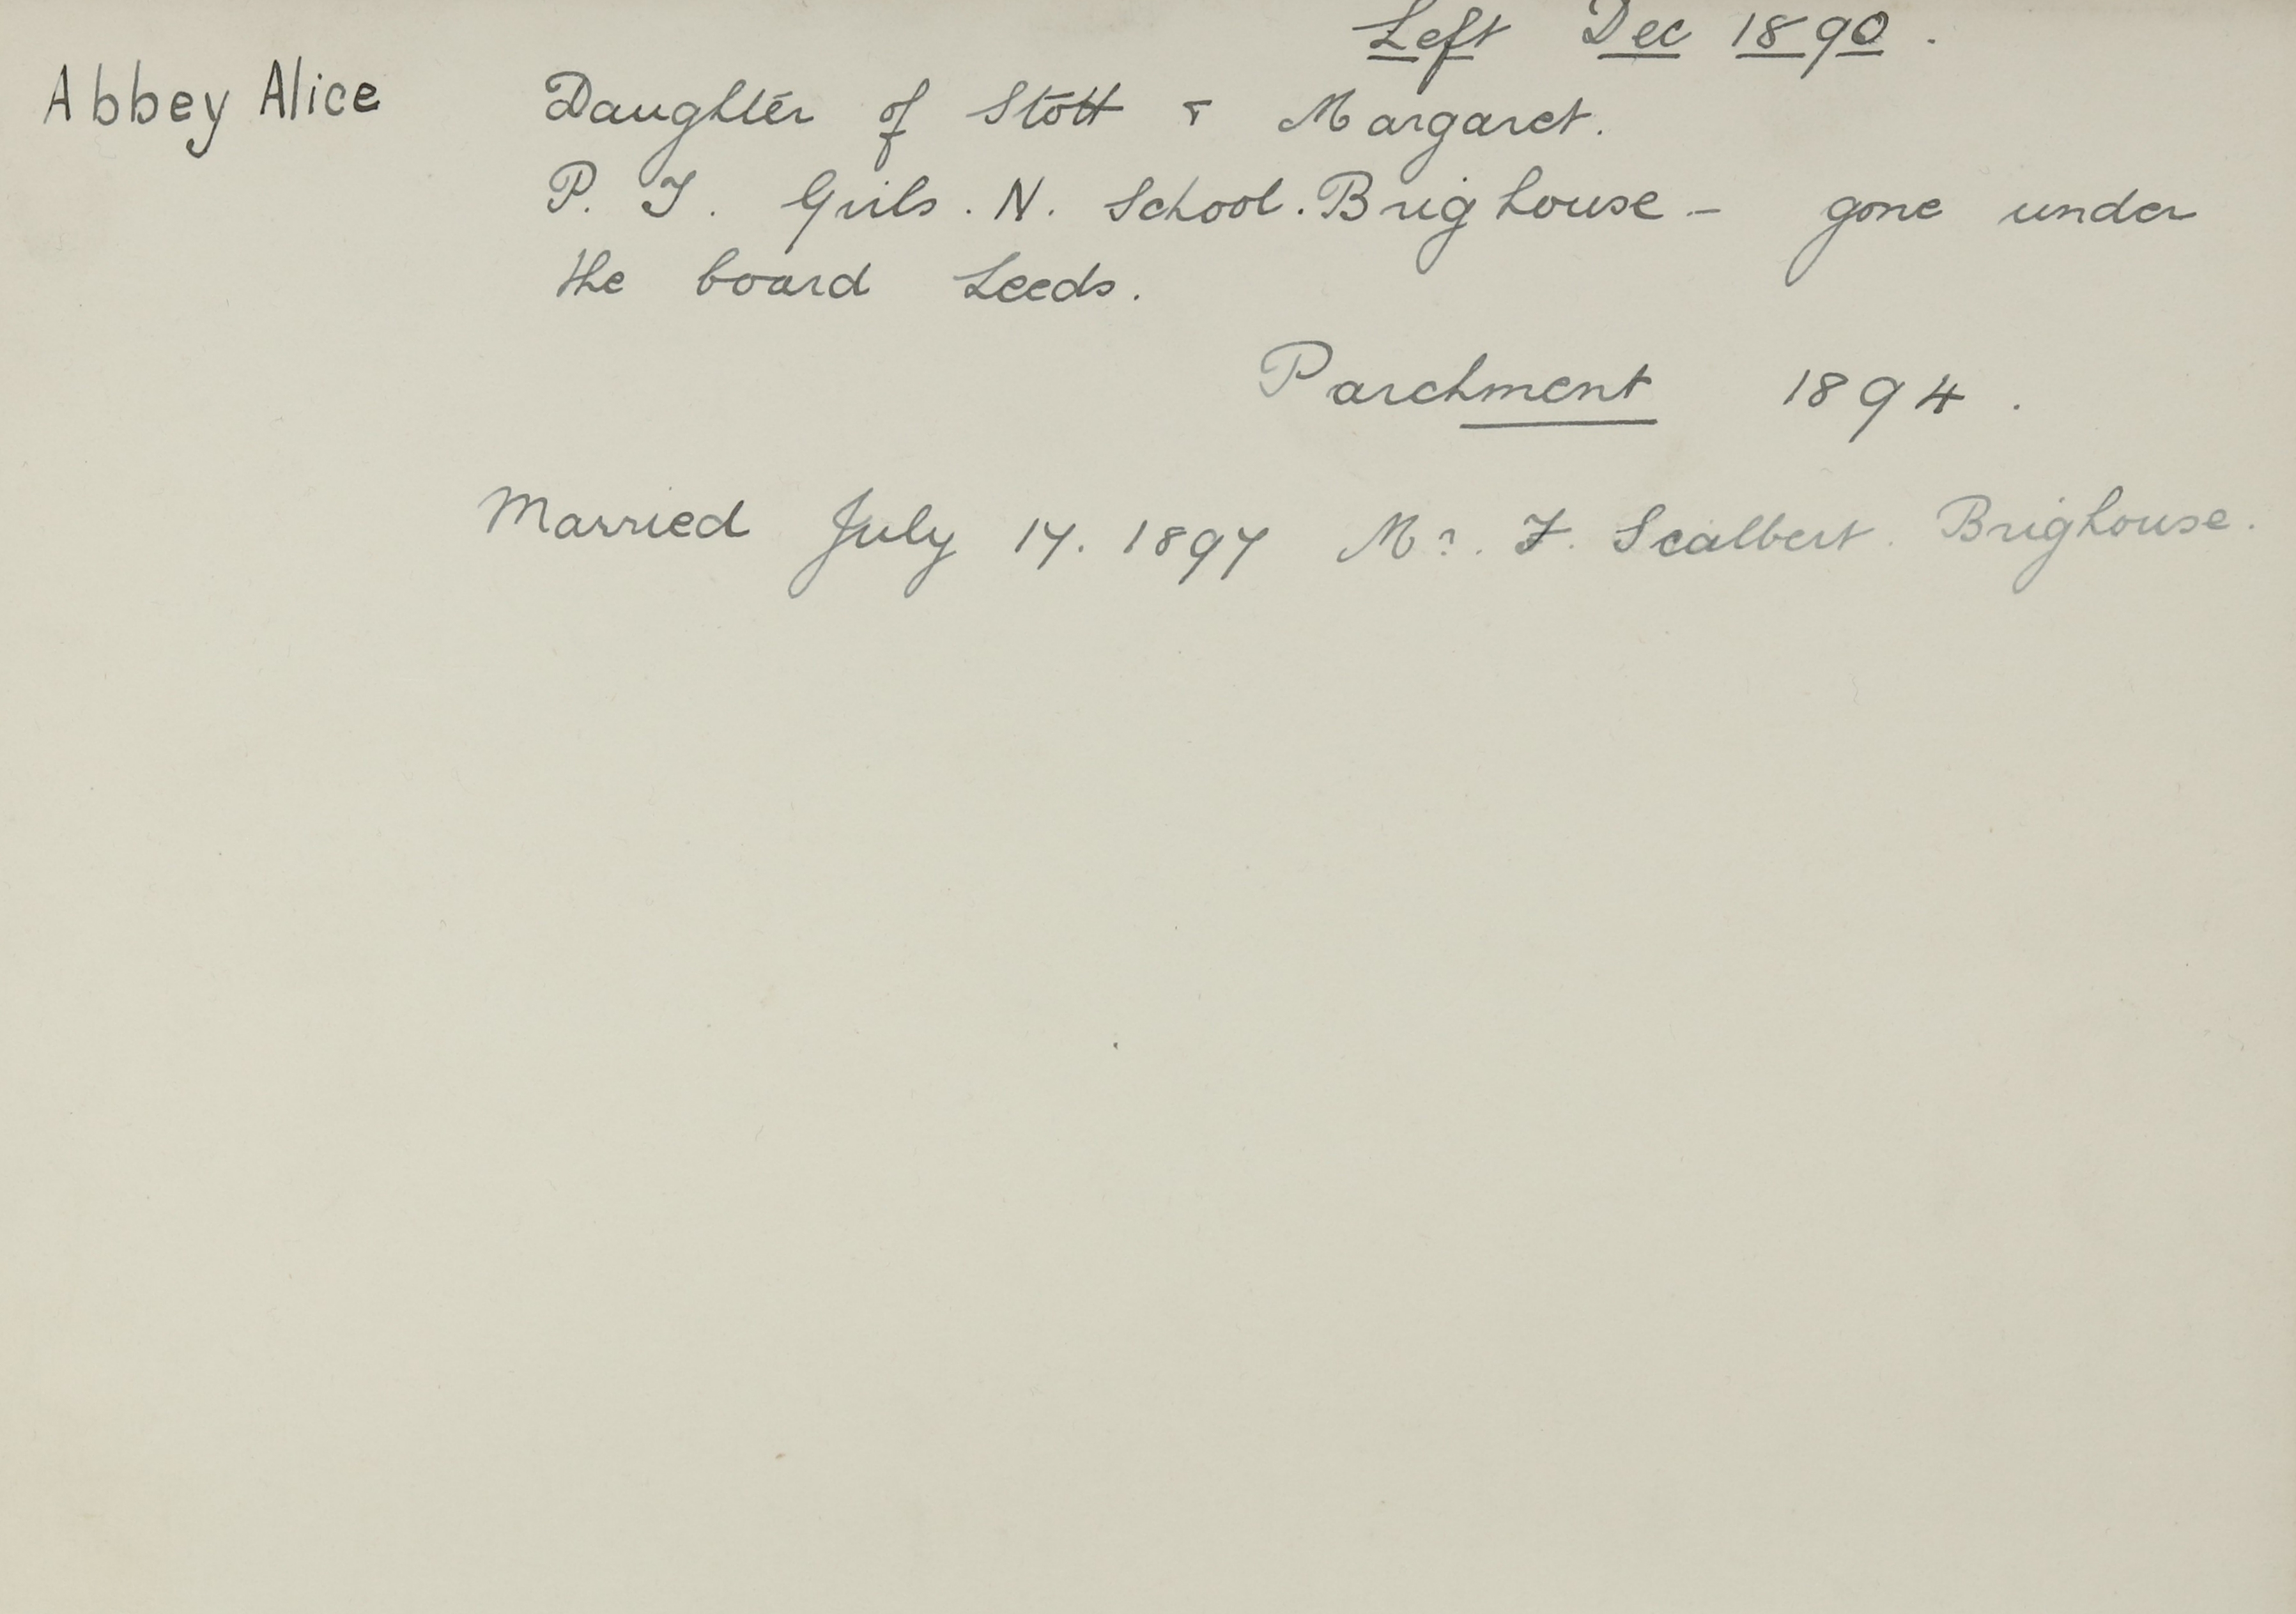 Left Dec 1890.
Abbey Alice Daughter of Stott & Margaret.
P. T. Girls. N. School. Brighouse - gone under
the board Leeds.
Parchment 1894.
Married July 17. 1897 Mr. F. Scalbert. Brighouse.